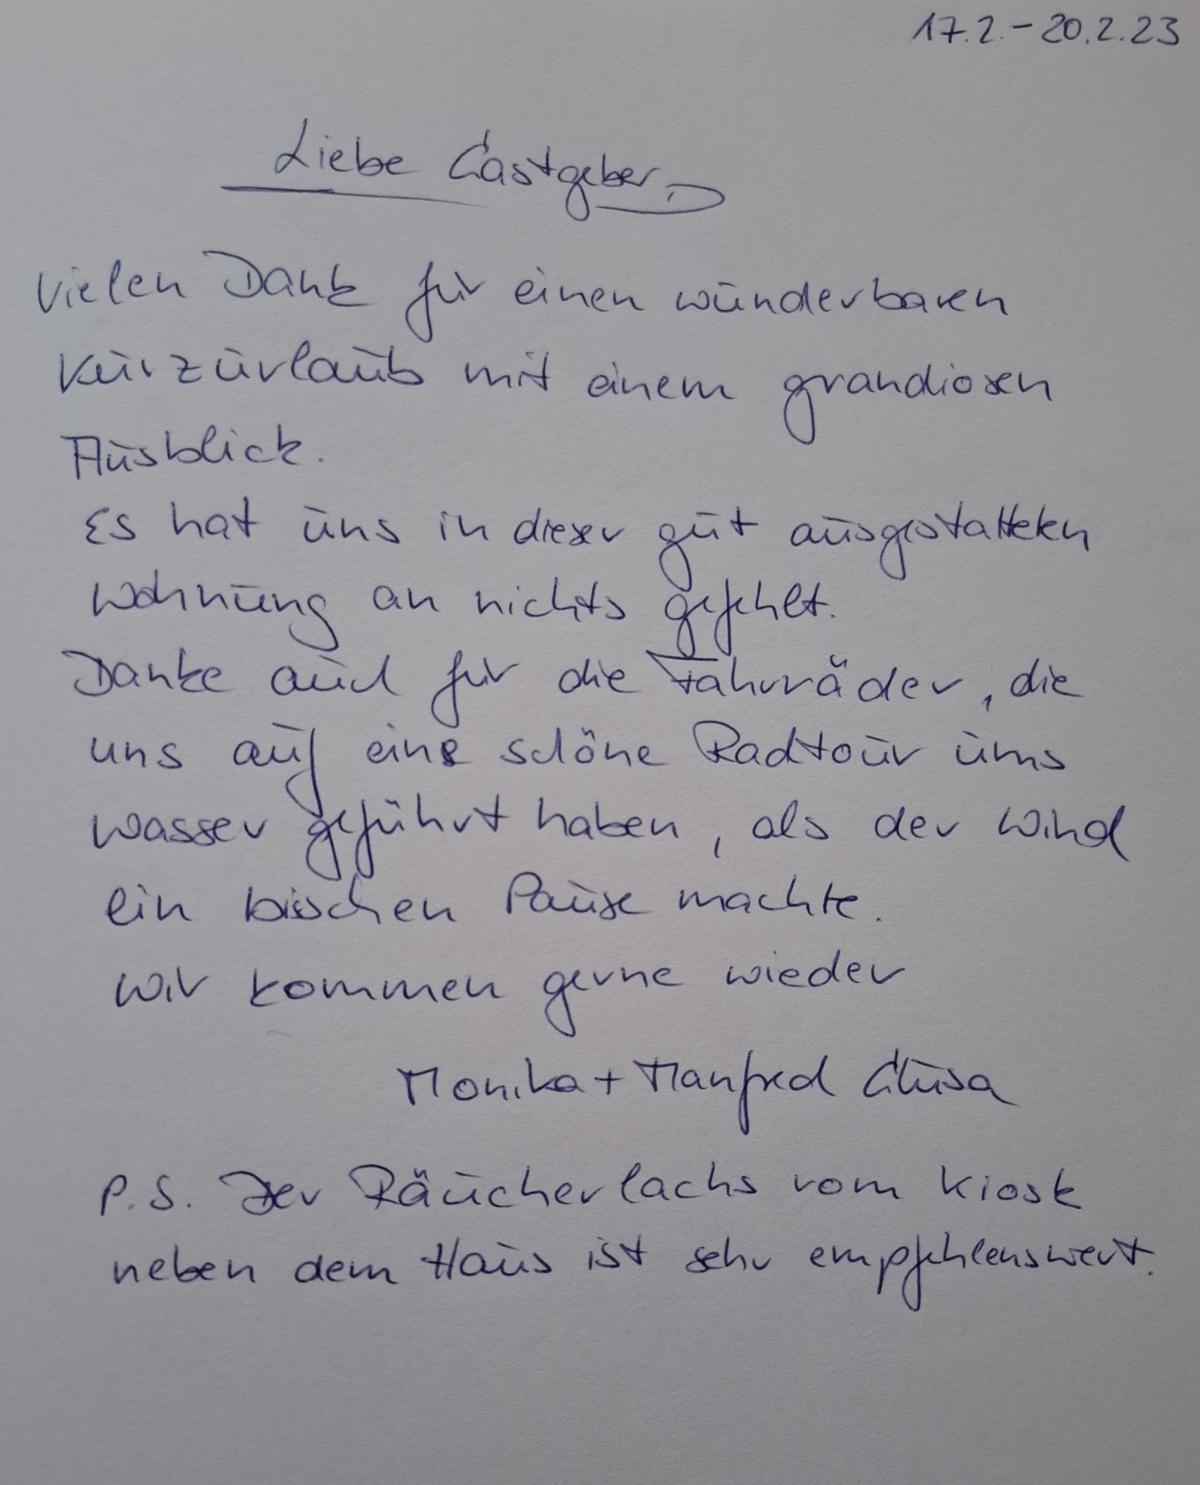 17.2.-20.2.23
Liebe Gastgeber,
Vielen Dank für einen wunderbaren
Kurzurlaub mit einem grandiosen
Ausblick.
Es hat uns in dieser gut ausgestatteten
Wohnung an nichts gefehlt.
Danke auch für die Fahrräder, die
uns auf eine schöne Radtour ums
Wasser geführt haben, als der Wind
ein bisschen Pause machte.
Wir kommen gerne wieder
Monika + Manfred
P.S. Der Räucherlachs vom Kiosk
neben dem Haus ist sehr empfehlenswert.